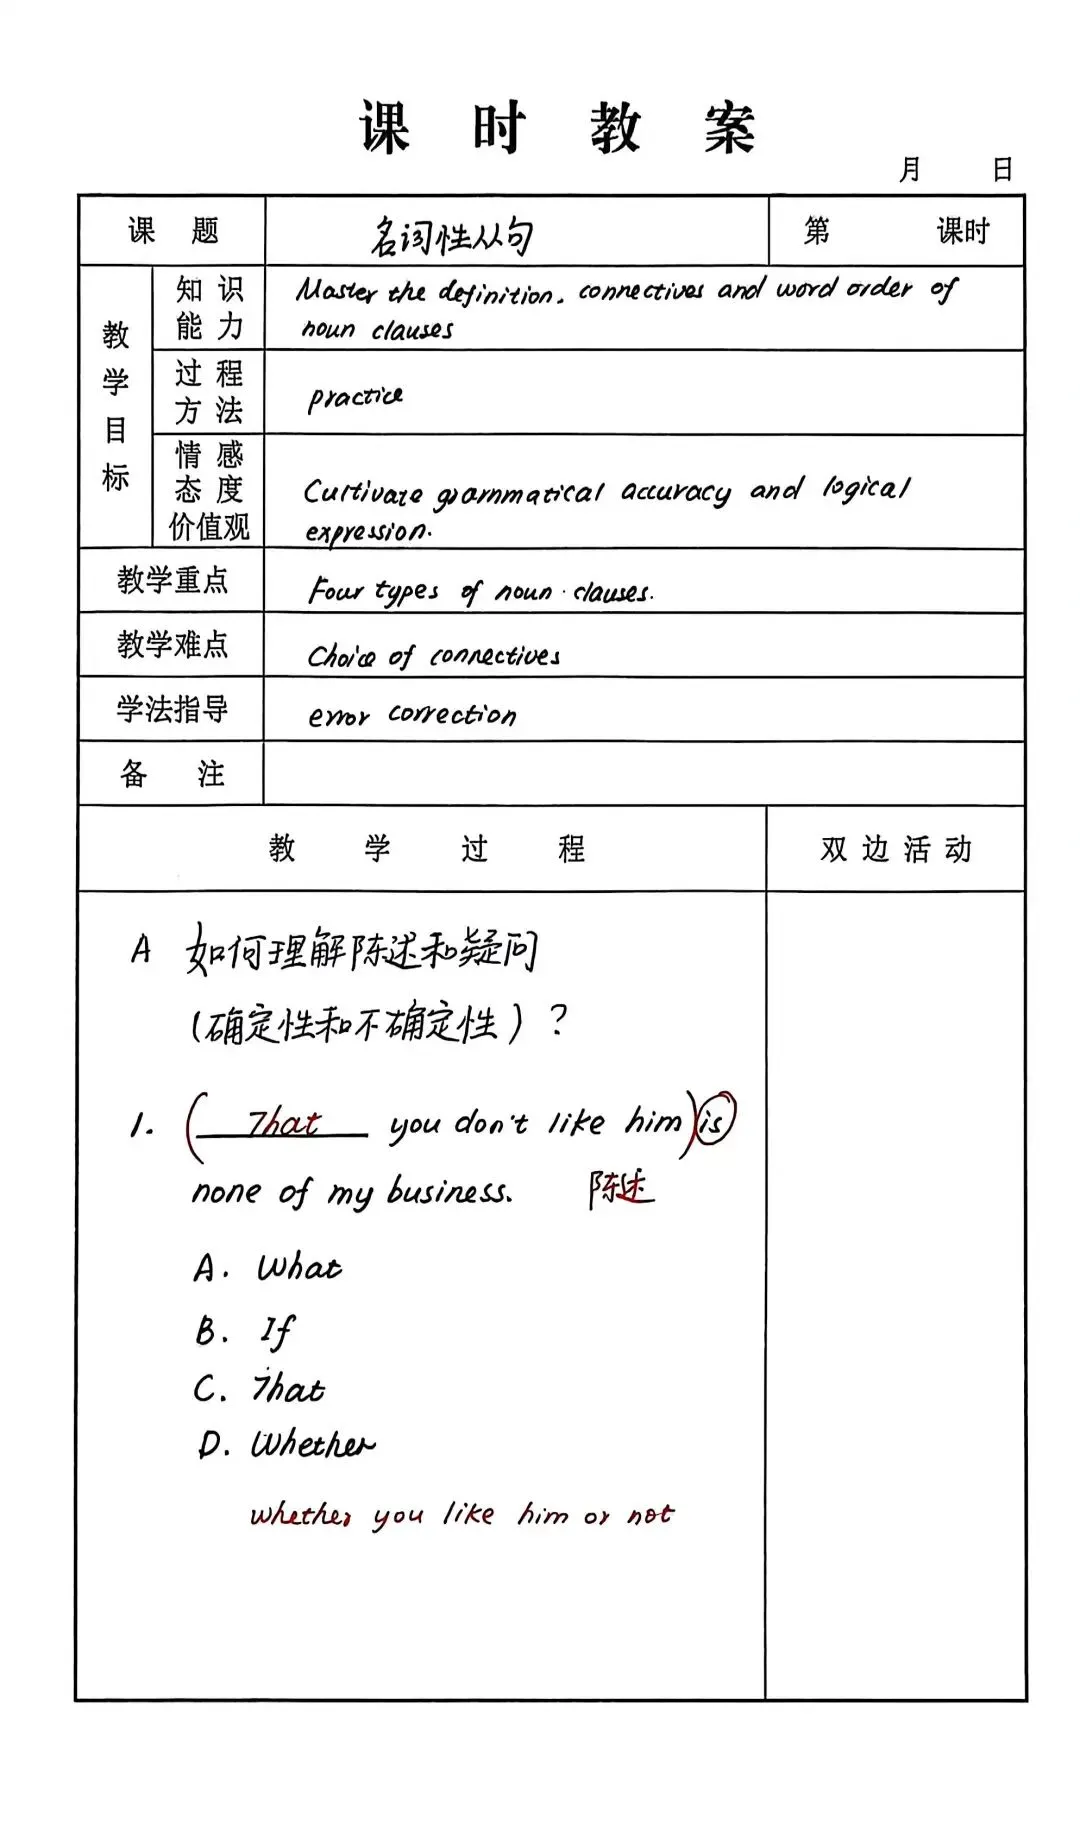 课 时 教 案
月 日
课 题 名词性从句 第 课时
教学目标
知识能力 Master the definition. connectives and word order of
noun clauses
过程方法 practice
情感态度价值观 Cultivate grammatical accuracy and logical
expression.
教学重点 Four types of noun clauses.
教学难点 Choice of connectives
学法指导 error correction
备 注
教 学 过 程 双边活动
A 如何理解陈述和疑问
(确定性和不确定性)?
1. (That you don't like him) is
none of my business. 陈述
A. What
B. If
C. That
D. Whether
whether you like him or not